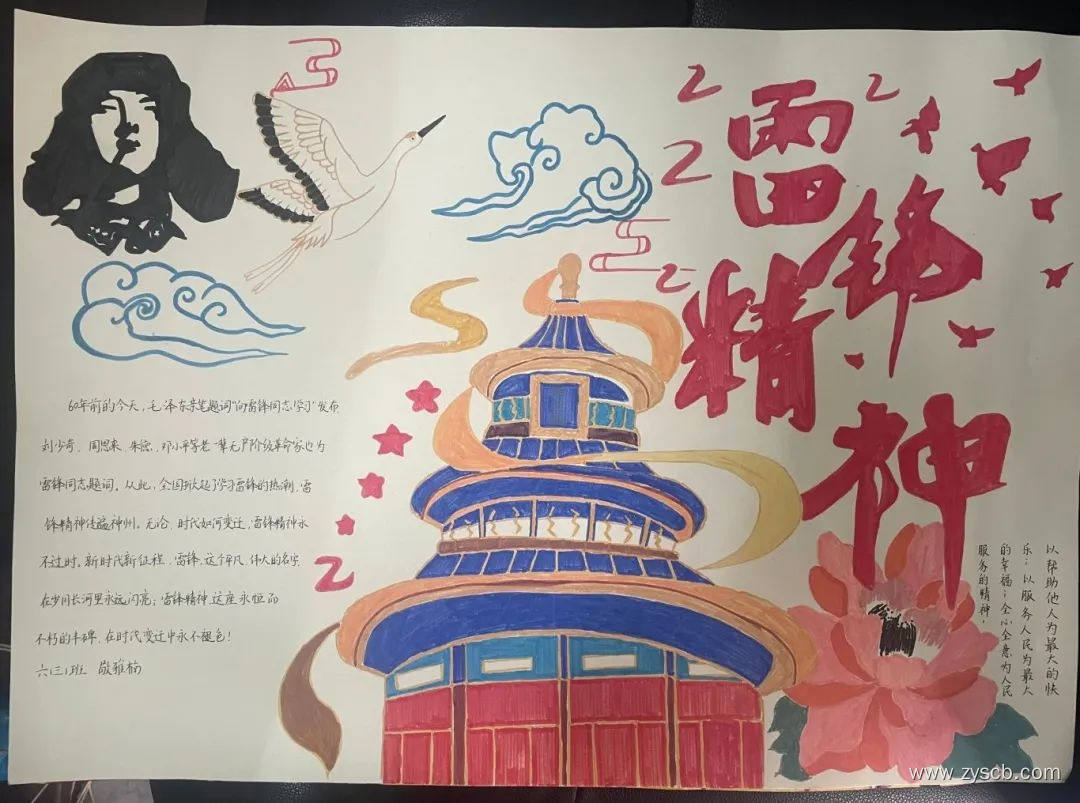 雷锋
精神
60年前的今天,毛泽东亲笔题词"向雷锋同志学习"发表
刘少奇、周恩来、朱德、邓小平等老一辈无产阶级革命家也为
雷锋同志题词。从此,全国掀起学习雷锋的热潮,雷
锋精神传遍神州。无论时代如何变迁,雷锋精神永
不过时。新时代新征程,雷锋,这个平凡、伟大的名字
在岁月长河里永远闪亮;雷锋精神,这座永恒而
不朽的丰碑,在时代变迁中永不褪色!
六(三)班 敬雅楠
以帮助他人为最大的快
乐;以服务人民为最大
的幸福;全心全意为人民
服务的精神。
www.zyscb.com